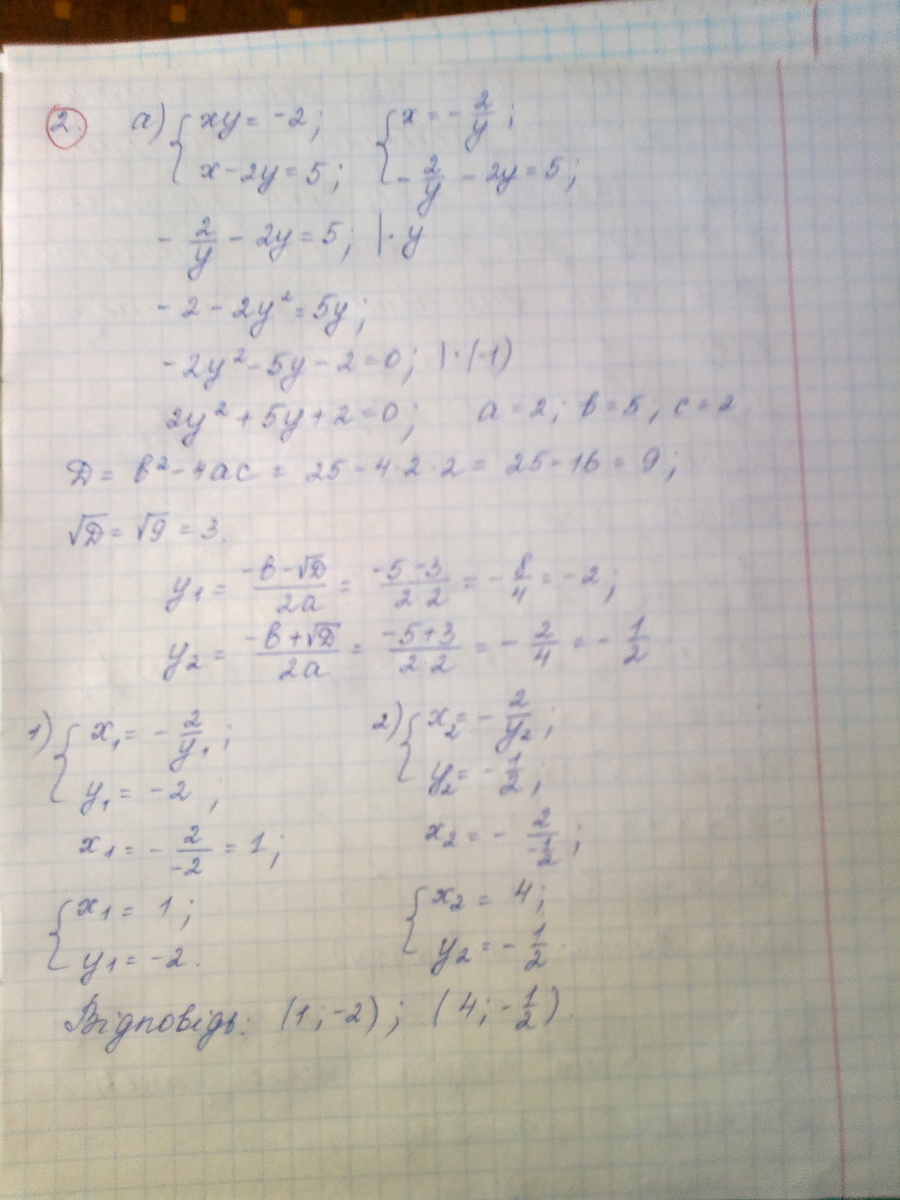 2. а) { xy = -2; { x = - 2/y;
x - 2y = 5; - 2/y - 2y = 5;
- 2/y - 2y = 5; | · y
- 2 - 2y² = 5y;
- 2y² - 5y - 2 = 0; | · (-1)
2y² + 5y + 2 = 0; a = 2; b = 5; c = 2.
D = b² - 4ac = 25 - 4 · 2 · 2 = 25 - 16 = 9;
√D = √9 = 3.
y₁ = (-b - √D)/2a = (-5 - 3)/(2·2) = - 8/4 = -2;
y₂ = (-b + √D)/2a = (-5 + 3)/(2·2) = - 2/4 = - 1/2
1) { x₁ = - 2/y₁; 2) { x₂ = - 2/y₂;
y₁ = -2; y₂ = - 1/2;
x₁ = - 2/-2 = 1; x₂ = - 2/(-1/2);
{ x₁ = 1; { x₂ = 4;
y₁ = -2. y₂ = - 1/2.
Відповідь: (1; -2); (4; - 1/2)